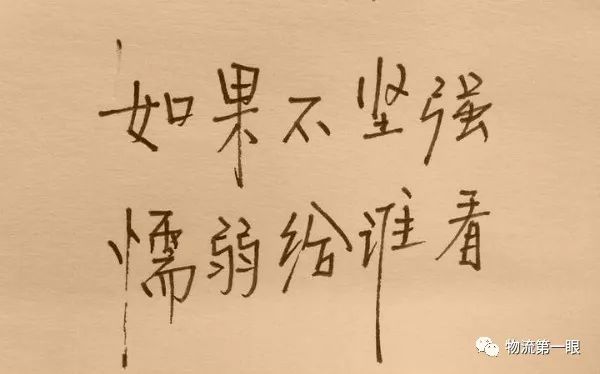 如果不坚强
懦弱给谁看
物流第一眼